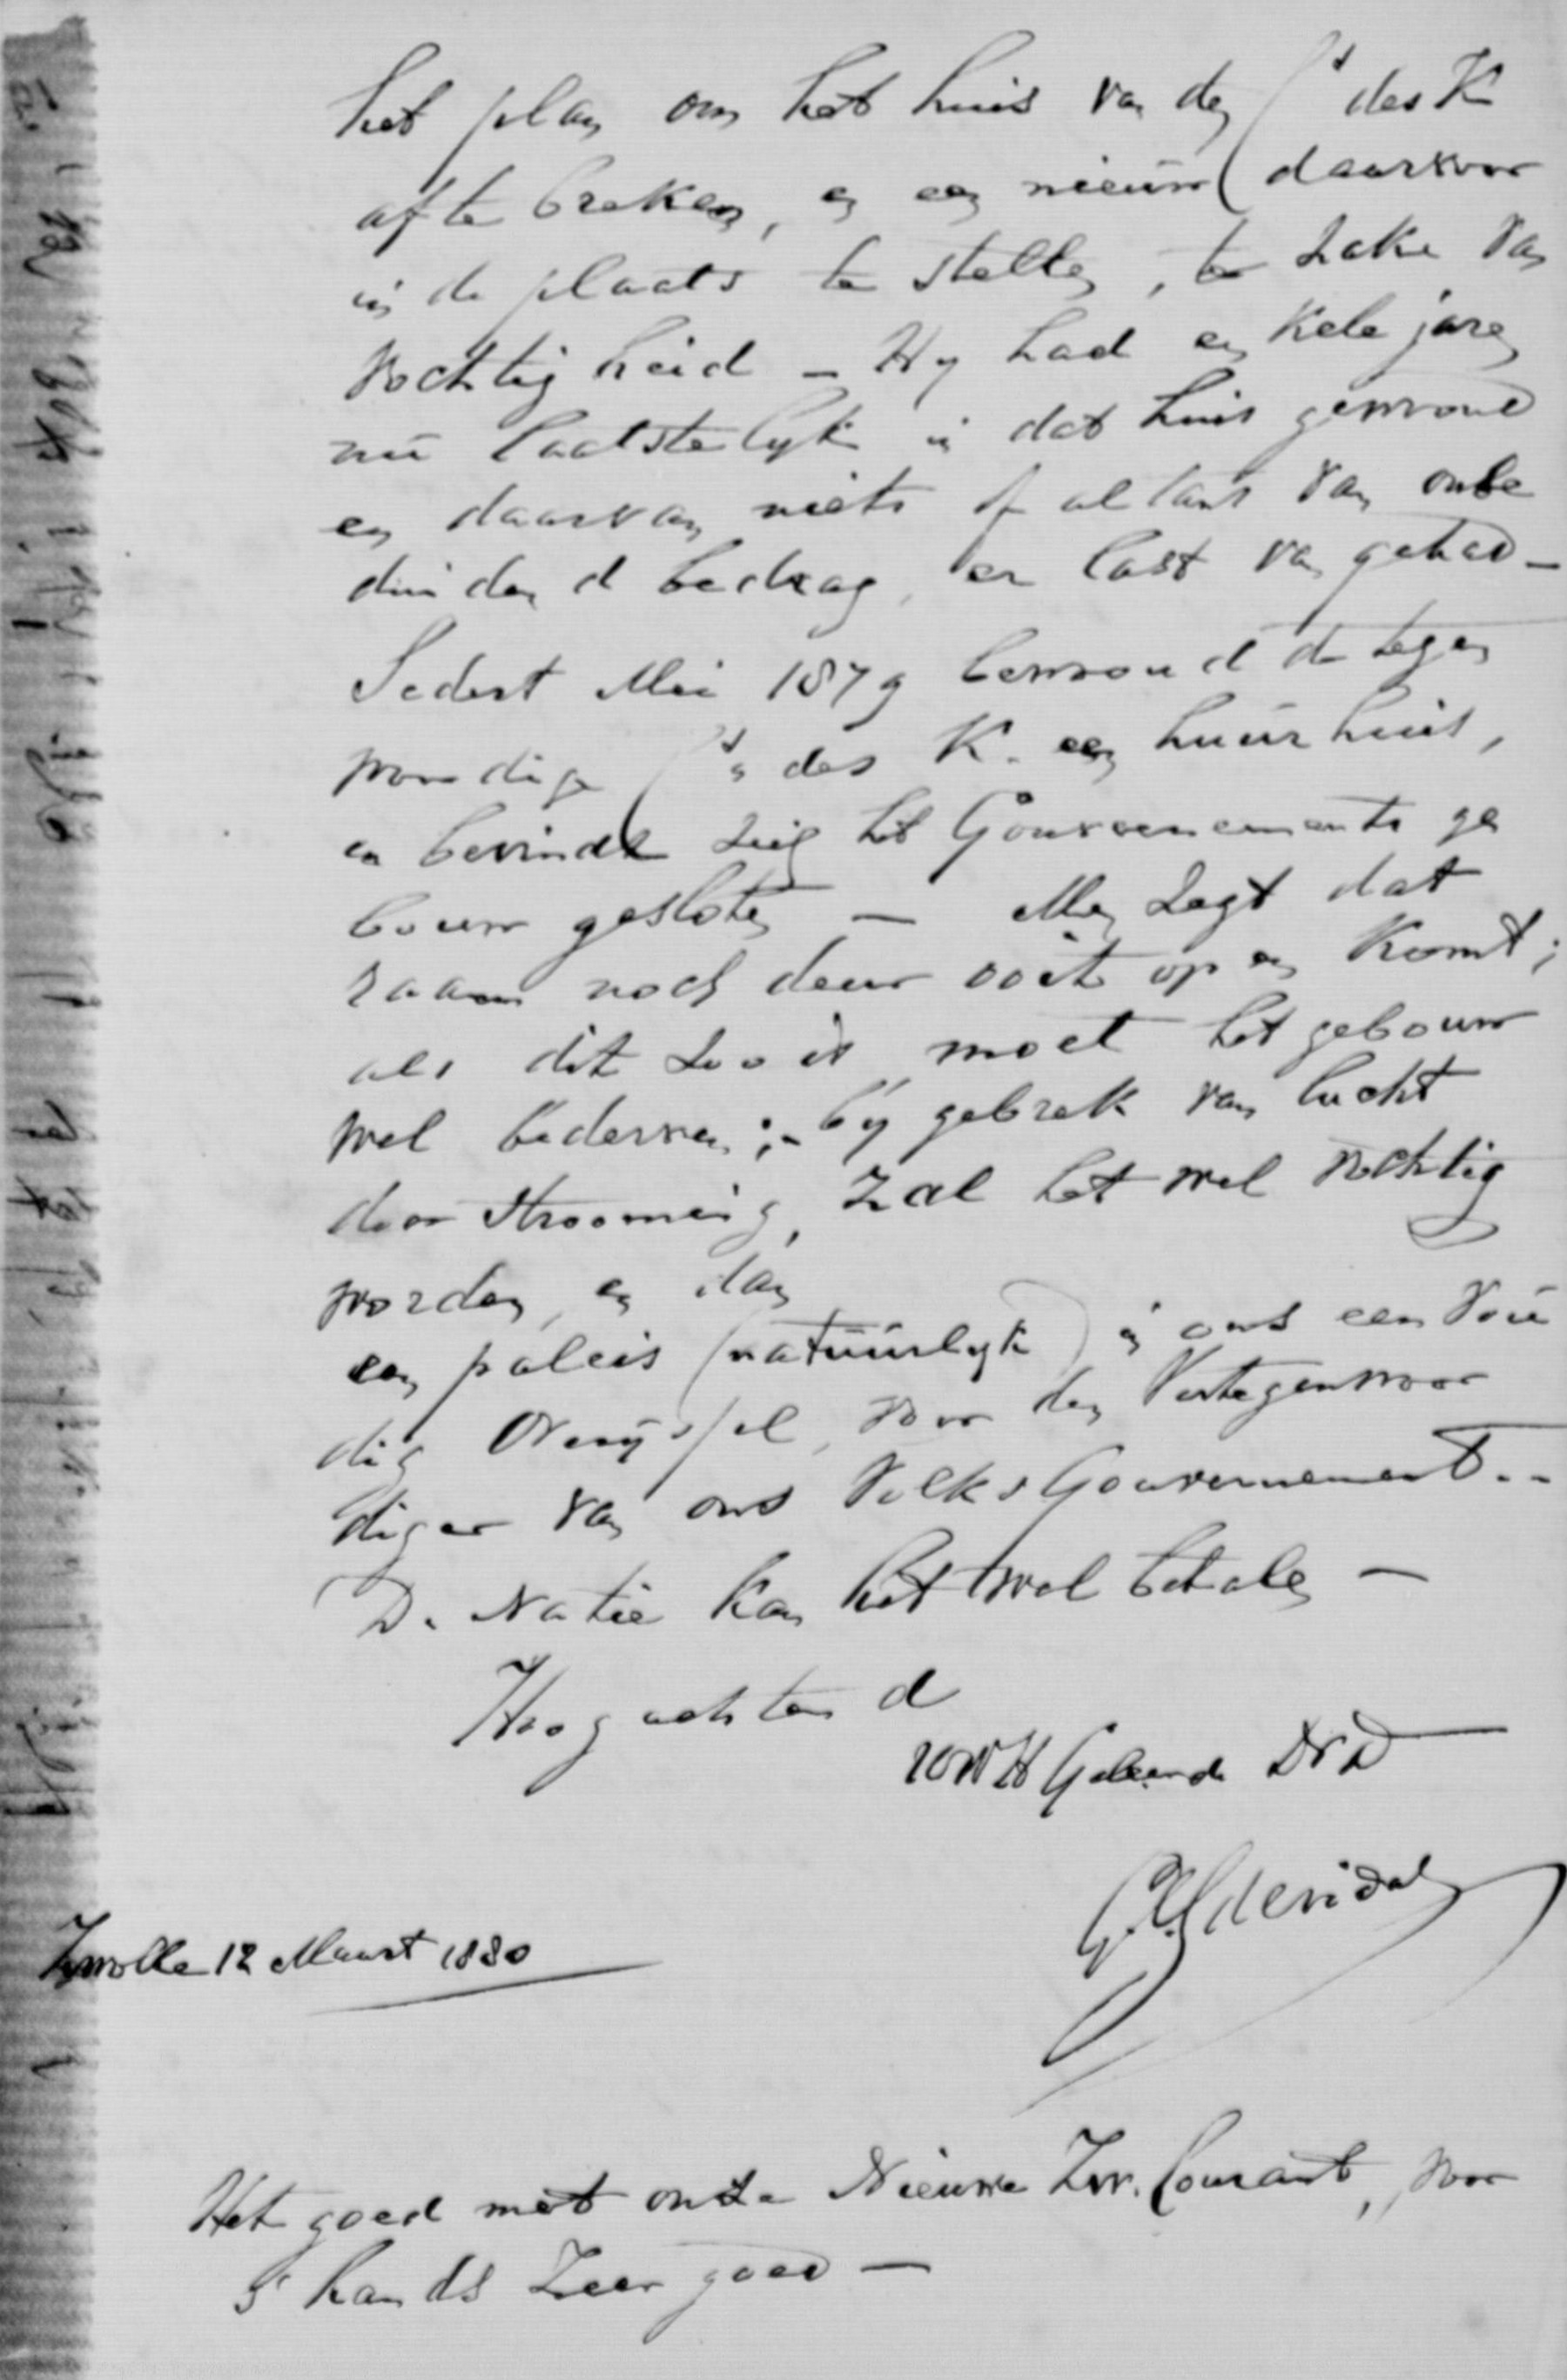 het plan om het huis van den Cs des K
af te breken, en een nieuw daarvoor
in de plaats te stellen, ter zake van
vochtigheid — Hy had enkele jaren
nu laatstelyk in dat huis gewoond
en daarvan niets of altans van onbe
duidend bedrag, er last van gehad —
Sedert Mei 1879 bewoond de tegen
woordige Cs des K. een huurhuis,
en bevindt zig het Gouvernements ge
bouw gesloten — Men zegt dat
raam noch deur ooit open komt;
als dit zoo is moet het gebouw
wel bederven; — by gebrek van lucht
door strooming, zal het wel vochtig
worden, en dan
een paleis (natuurlyk) in ons eenvou
dig Overijssel, voor den Vertegenwoor
diger van ons Volks Gouvernement..
De Natie kan het wel betalen —
Hoogachtend
UWHGeleerde DVD
Zwolle 12 Maart 1880
Het goed met onze Nieuwe Zw. Courant, voor
s hands Zeer goed —